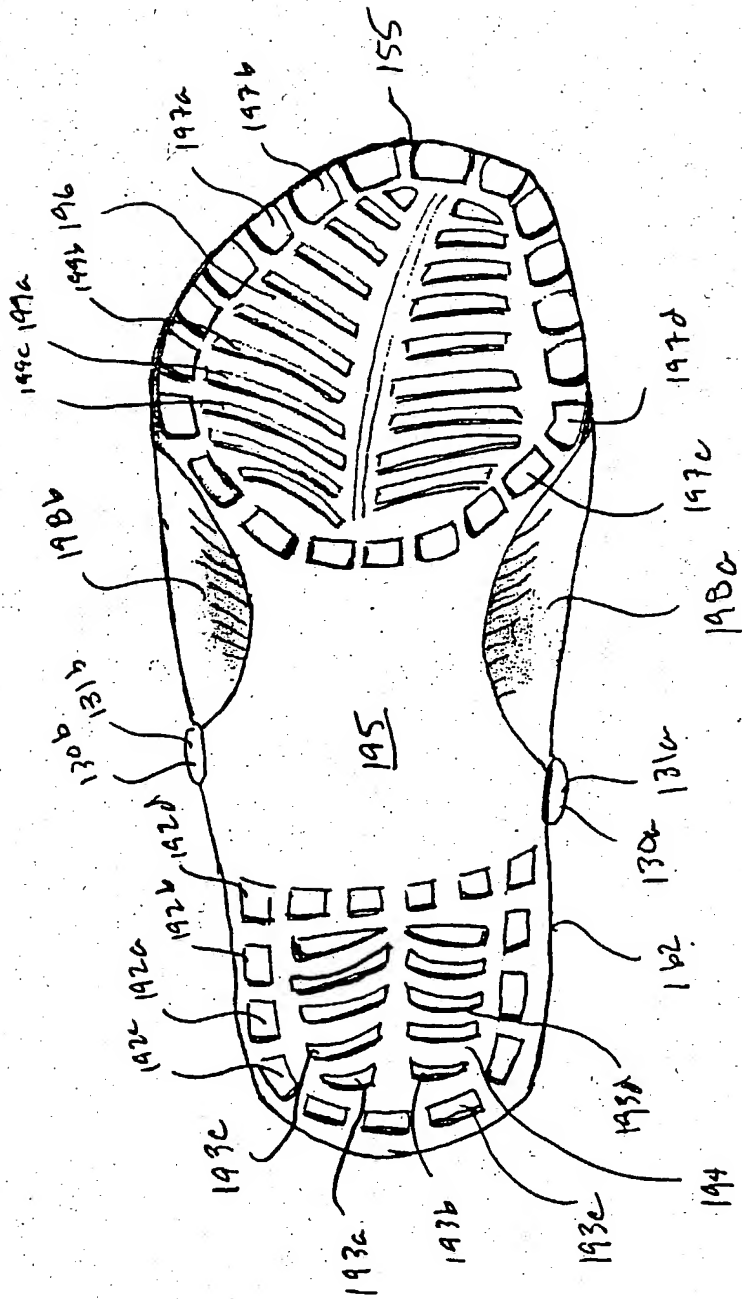 155
197b
197a
196
199b
199a
199c
197d
197c
198b
198a
131b
130b
195
131a
130a
192d
192b
192a
192c
162
193d
194
193c
193a
193b
193e